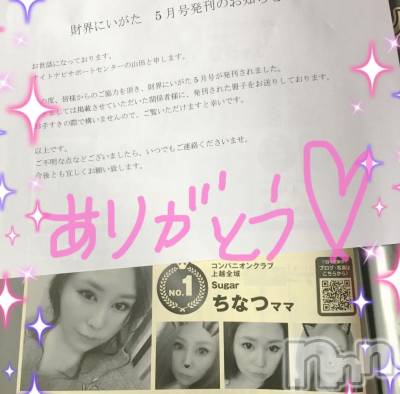 財界にいがた 5月号発刊のお知らせ
お世話になっております。
ナイトナビサポートセンターの山田と申します。
度、皆様からのご協力を頂き、財界にいがた5月号が発刊されました。
しましては掲載させていただいた関係者様に、発刊された冊子をお送りしております。
手すきの際で構いませんので、ご覧いただけますと幸いです。
以上です。
ご不明な点などございましたら、いつでもご連絡くださいませ。
今後とも宜しくお願い致します。
ありがとう
NO.1
コンパニオンクラブ
上越全域
Sugar
ちなつママ
ブログ・写真は
こちらから!